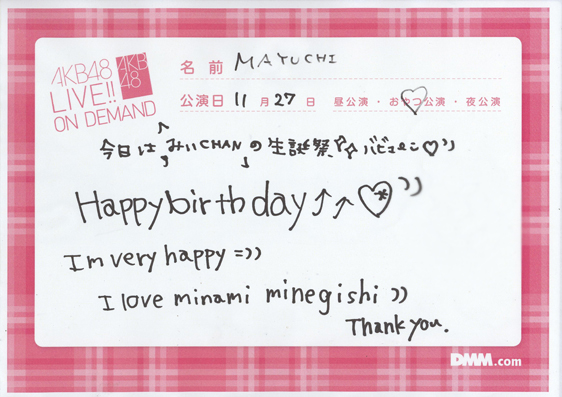 AKB48
LIVE!!
ON DEMAND
AKB
48
名前 MAYUCHI
公演日 11月27日 昼公演・おやつ公演・夜公演
今日は みいCHAN の生誕祭
Happy birthday↑↑♡
I'm very happy =))
I love minami minegishi ))
Thank you.
DMM.com